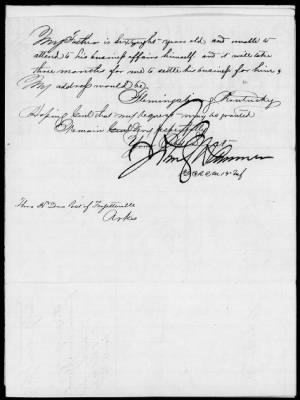 My Father is sixty eight years old and unable to
attend to his business affairs himself and it will take
three months for me to settle his business for him &
My address would be
Flemingsburg Kentucky
Hoping Genl that my request may be granted
I Remain Genl Very respectfully
Your Obt Servt
Inf
Thro Hd Qrs Post of Fayetteville
Arks